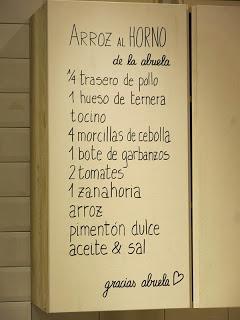 ARROZ AL HORNO
de la abuela
1/4 trasero de pollo
1 hueso de ternera
tocino
4 morcillas de cebolla
1 bote de garbanzos
2 tomates
1 zanahoria
arroz
pimentón dulce
aceite & sal
gracias abuela♡